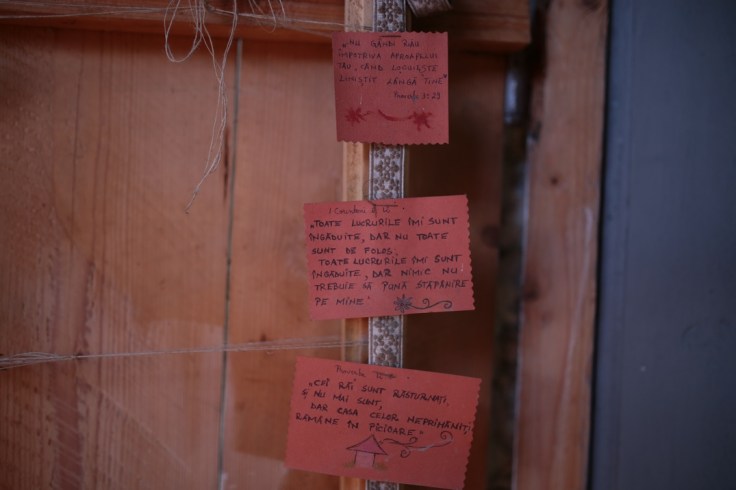 „NU GÂNDI RĂU
ÎMPOTRIVA APROAPELUI
TĂU, CÂND LOCUIEȘTE
LINIȘTIT LÂNGĂ TINE"
Proverbe 3:29
1 Corinteni 6
„TOATE LUCRURILE ÎMI SUNT
ÎNGĂDUITE, DAR NU TOATE
SUNT DE FOLOS;
TOATE LUCRURILE ÎMI SUNT
ÎNGĂDUITE, DAR NIMIC NU
TREBUIE SĂ PUNĂ STĂPÂNIRE
PE MINE"
Proverbe
„CEI RĂI SUNT RĂSTURNAȚI,
ȘI NU MAI SUNT,
DAR CASA CELOR NEPRIHĂNIȚI
RĂMÂNE ÎN PICIOARE"